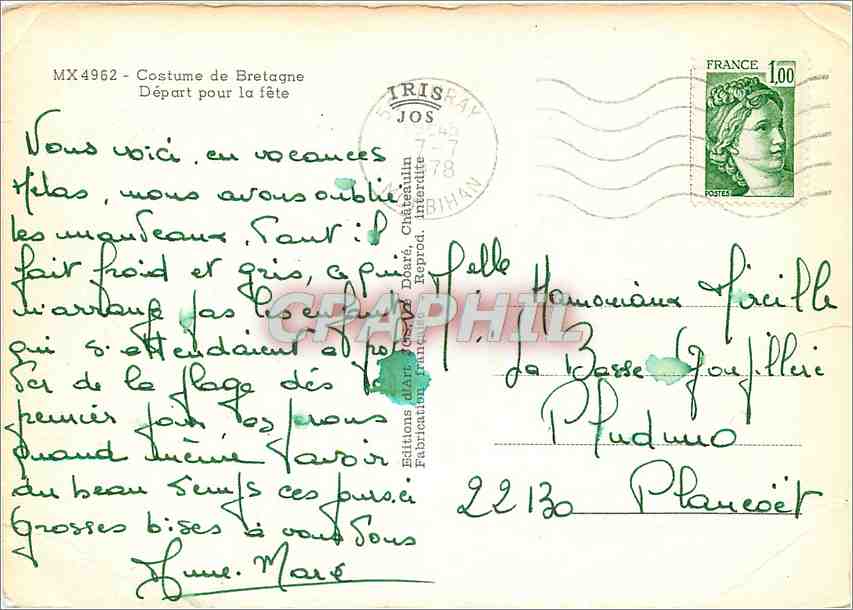 MX 4962 - Costume de Bretagne
Départ pour la fête
IRIS
JOS
RAY
7-7
78
BIHAN
FRANCE 1,00
POSTES
Vous voici, en vacances
Hélas, nous avons oublié
les manteaux, Tant il
fait froid et gris, ce qui
n'arrange pas les enfants
qui s'attendaient à profi
Ter de la plage dès le
premier jour
quand même l'avoir
du beau Temps ces jours-ci
Grosses bises à vous Tous
Anne-Marie
Editions d'Art JOS Le Doaré, Châteaulin
Fabrication française Reprod. interdite
CPAPHIL
Melle Hamoniaux Mireille
La Basse
Pluduno
22130 Plancoët